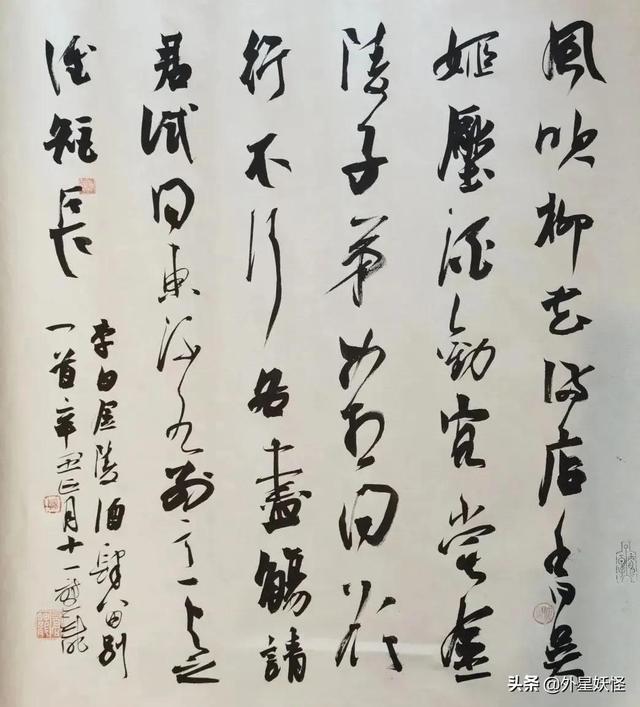 風吹柳花满店香吳
姬壓酒勸客嘗金
陵子弟来相送欲
行不行各盡觴請
君試問東流水別意與之
誰短長
李白金陵酒肆留別
一首辛丑正月十一
头条 @外星妖怪